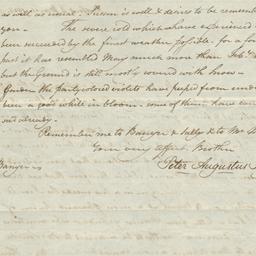 as well as usual. Susan is well & desires to be remember
you. The severe cold which we have experienced
been succeeded by the finest weather possible. for a fo
past it has resembled May much more than Feb.
but the Ground is still mostly covered with snow.
Garden the party colored violets have peeped from unde
been a good while in bloom. some of them have even
out already.
Remember me to Banyer & Sally & to Mr.
Your very affect. Brother
Peter Augustus
Banyer